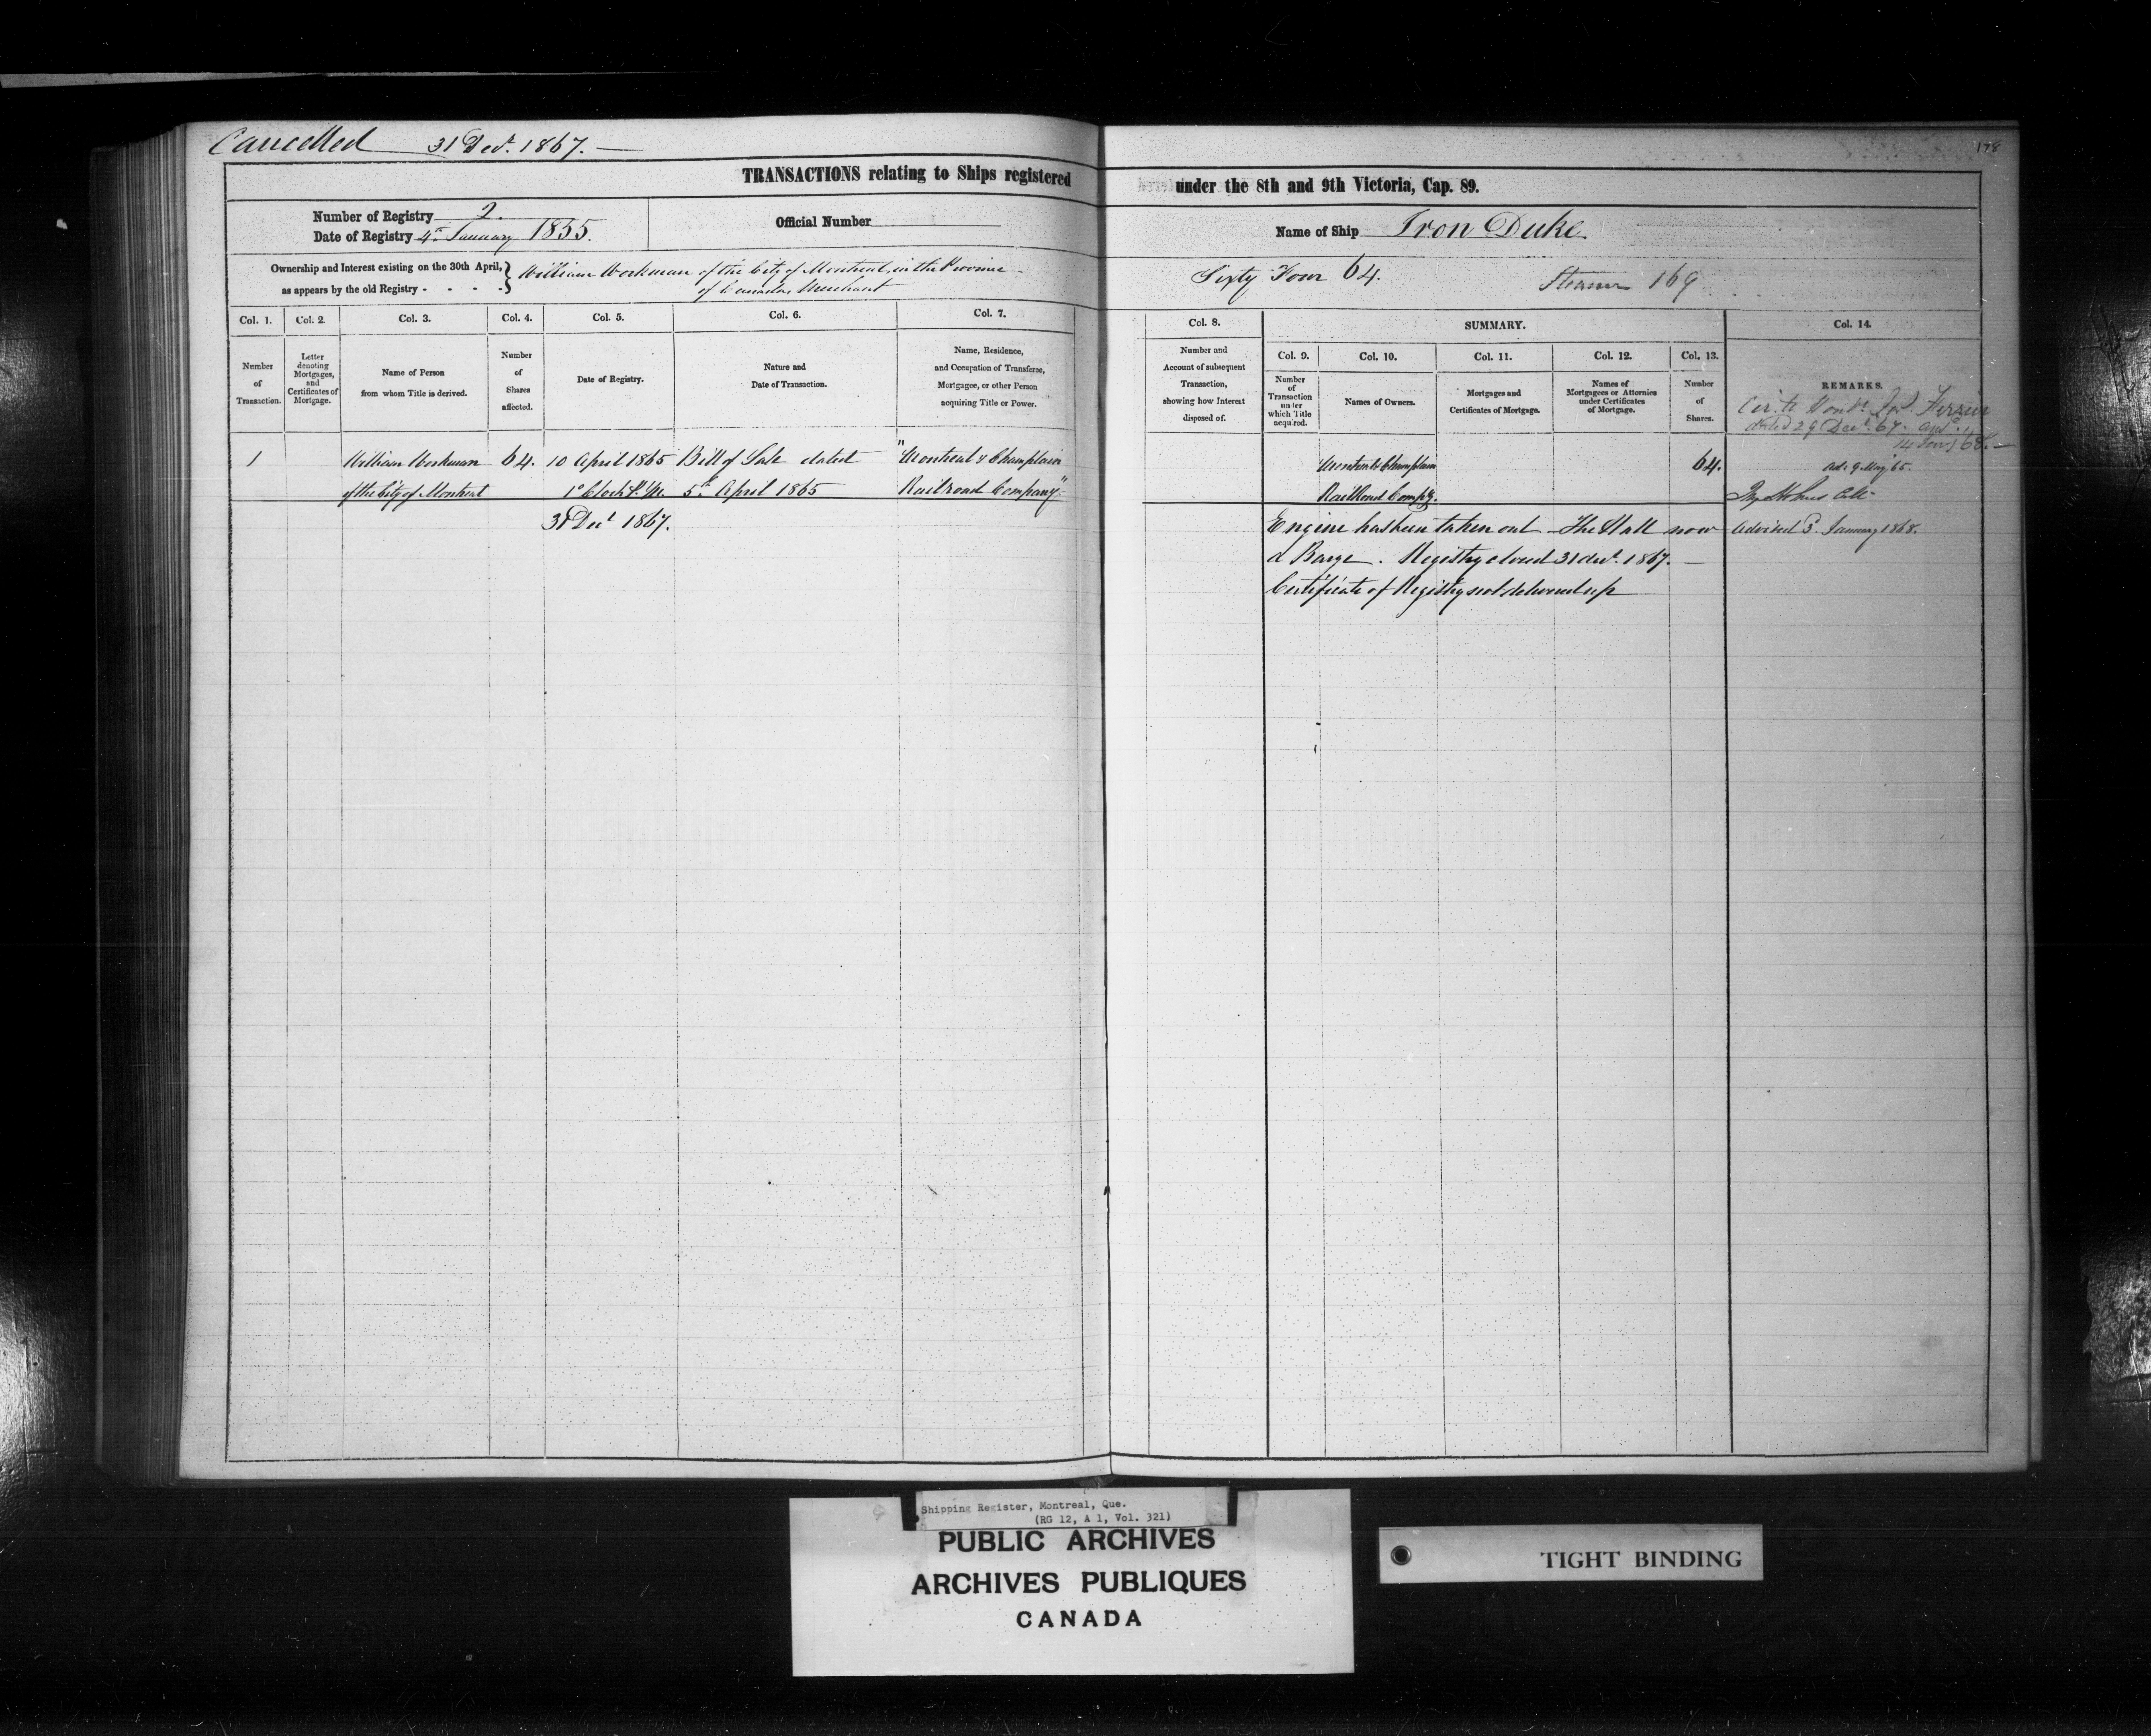 Cancelled 31 Decr. 1867. —
178
TRANSACTIONS relating to Ships registered under the 8th and 9th Victoria, Cap. 89.
Number of Registry 2.
Date of Registry 4th January 1855.
Official Number
Name of Ship Iron Duke
Ownership and Interest existing on the 30th April,
as appears by the old Registry - - - -
William Workman of the City of Montreal, in the Province
of Canada, Merchant
Sixty Four 64.
Steamer 169
Col. 1.
Number
of
Transaction.
Col. 2.
Letter
denoting
Mortgages,
and
Certificates of
Mortgage.
Col. 3.
Name of Person
from whom Title is derived.
Col. 4.
Number
of
Shares
affected.
Col. 5.
Date of Registry.
Col. 6.
Nature and
Date of Transaction.
Col. 7.
Name, Residence,
and Occupation of Transferee,
Mortgagee, or other Person
acquiring Title or Power.
Col. 8.
Number and
Account of subsequent
Transaction,
showing how Interest
disposed of.
SUMMARY.
Col. 9.
Number
of
Transaction
under
which Title
acquired.
Col. 10.
Names of Owners.
Col. 11.
Mortgages and
Certificates of Mortgage.
Col. 12.
Names of
Mortgagees or Attornies
under Certificates
of Mortgage.
Col. 13.
Number
of
Shares.
Col. 14.
REMARKS.
dated 29 Decr. 67.
14 Jany 68. —
1
William Workman
of the City of Montreal
64.
10 April 1865
1 o'Clock P.M.
Bill of Sale dated
5th April 1865
"Montreal & Champlain
Railroad Company"
Montreal & Champlain
Railroad Compy.
64.
Ad. 9 May 65.
31 Decr 1867.
Engine has been taken out The Hull now
a Barge. Registry closed 31 decr. 1867. —
Certificate of Registry not delivered up
Advised 3d January 1868.
Shipping Register, Montreal, Que.
(RG 12, A 1, Vol. 321)
PUBLIC ARCHIVES
ARCHIVES PUBLIQUES
CANADA
TIGHT BINDING